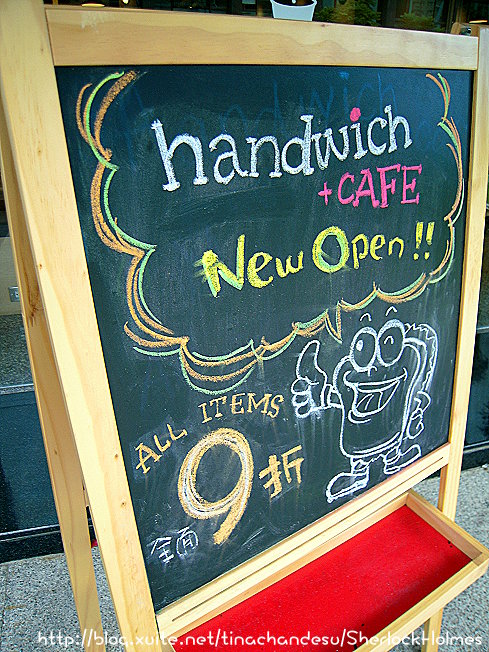 handwich
+ CAFE
New Open !!
ALL ITEMS
9折
全面
http://blog.xuite.net/tinachandesu/SherlockHolmes